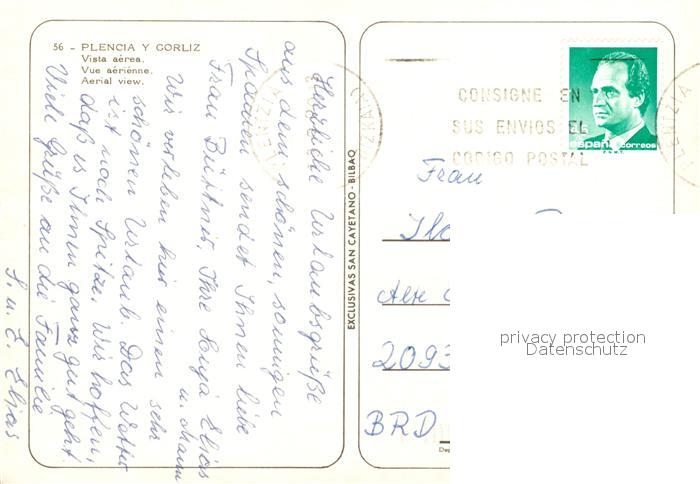 56 - PLENCIA Y GORLIZ
Vista aérea.
Vue aérienne.
Aerial view.
Herzliche Urlaubsgrüße
aus dem schönen, sonnigen
Spanien sendet Ihnen liebe
Frau Büttner, Ihre Elias
u. Mann
Wir verleben hier einen sehr
schönen Urlaub. Das Wetter
ist noch Spitze. Wir hoffen,
daß es Ihnen ganz gut geht.
Viele Grüße an die Familie
S. u. E. Elias
EXCLUSIVAS SAN CAYETANO - BILBAO
CONSIGNE EN
SUS ENVIOS EL
CODIGO POSTAL
PLENTZIA
españa correos
F.N.M.T.
Frau
Alte
2093
BRD
Dep
privacy protection
Datenschutz